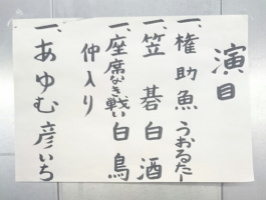 演目
一、権助魚 うおるたー
一、笠碁 白酒
一、座席なき戦い 白鳥
仲入り
一、あゆむ 彦いち